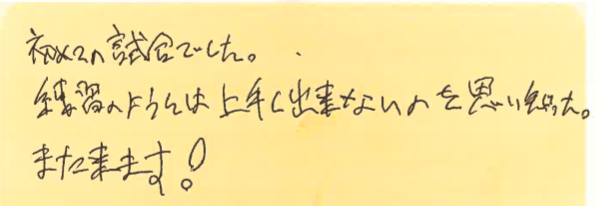 初めての試合でした。
練習のようには上手く出来ないのを思い知った。
また来ます!